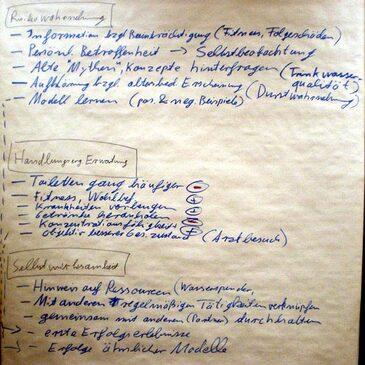 Risikowahrnehmung
— Information bzgl Beeinträchtigung (Fitness, Folgeschäden)
— Persönl. Betroffenheit → Selbstbeobachtung
— Alte "Mythen", Konzepte hinterfragen (Trinkwasser-
qualität)
— Aufklärung bzgl altersbed. Erscheinung (Durstwahrnehmung)
— Modell lernen (pos. & neg. Beispiele)
Handlungserg. Erwartung
— Toilettengang häufiger -
— Fitness, Wohlbef. +
— Krankheiten vorbeugen +
— Getränke
— Konzentrationsfähigkeit +
— objektiv besserer Ges.zustand + (Arztbesuch)
Selbstwirksamkeit
— Hinweis auf Ressourcen (Wasserspender,
— Mit anderen regelmäßigen Tätigkeiten verknüpfen
— gemeinsam mit anderen (Partner) durchhalten
— erste Erfolgserlebnisse
— Erfolge ähnlicher Modelle